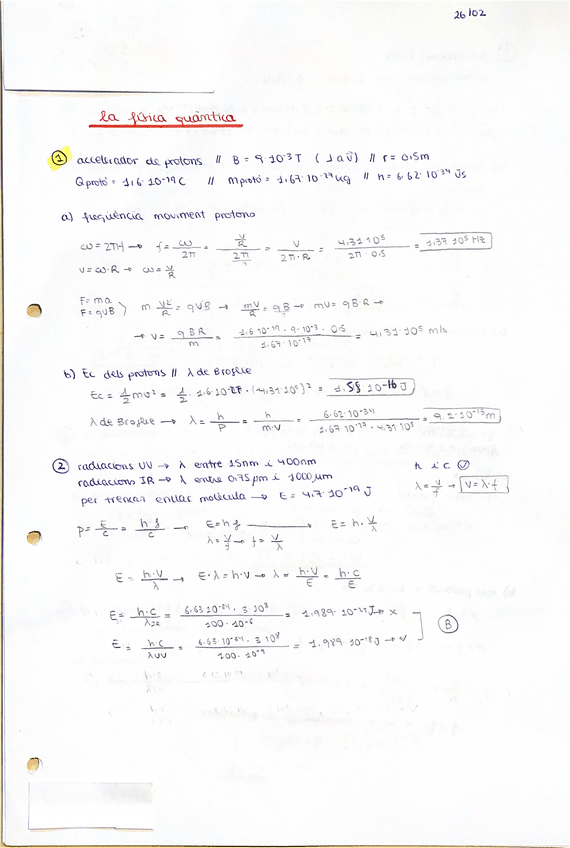 26/02
la física quàntica
① accelerador de protons // B = 9·10⁻³T ( ⊥ a v̄ ) // r = 0,5m
Q protó = 1,6·10⁻¹⁹C // M protó = 1,67·10⁻²⁷kg // h = 6,62·10⁻³⁴ Js
a) freqüència moviment protons
ω = 2πf → f = ω/2π = (v/R)/(2π/1) = v/(2π·R) = 4,31·10⁵/(2π·0,5) = 1,37·10⁵ Hz
v = ω·R → ω = v/R
F = ma
F = qvB } m v²/R = qvB → mv/R = qB → mv = qBR →
→ v = qBR/m = (1,6·10⁻¹⁹ · 9·10⁻³ · 0,5)/(1,67·10⁻²⁷) = 4,31·10⁵ m/s
b) Ec dels protons // λ de Broglie
Ec = 1/2 mv² = 1/2 · 1,6·10⁻²⁷ · (4,31·10⁵)² = 1,55 10⁻¹⁶ J
λ de Broglie → λ = h/p = h/(m·v) = 6,62·10⁻³⁴/(1,67·10⁻²⁷ · 4,31·10⁵) = 9,2·10⁻¹³m
② radiacions UV → λ entre 15nm i 400nm
h i c ✓
radiacions IR → λ entre 0,75 µm i 1000 µm
λ = v/f → v = λ·f
per trencar enllaç molècula → E = 4,7·10⁻¹⁹ J
p = E/c = h·f/c → E = h f → E = h · v/λ
λ = v/f → f = v/λ
E = h·v/λ → E·λ = h·v → λ = h·v/E = h·c/E
E = h·c/λIR = (6,63·10⁻³⁴ · 3·10⁸)/(100·10⁻⁶) = 1,989·10⁻²¹J → x
Ⓑ
E = h·c/λUV = (6,63·10⁻³⁴ · 3·10⁸)/(100·10⁻⁹) = 1,989·10⁻¹⁸J → v